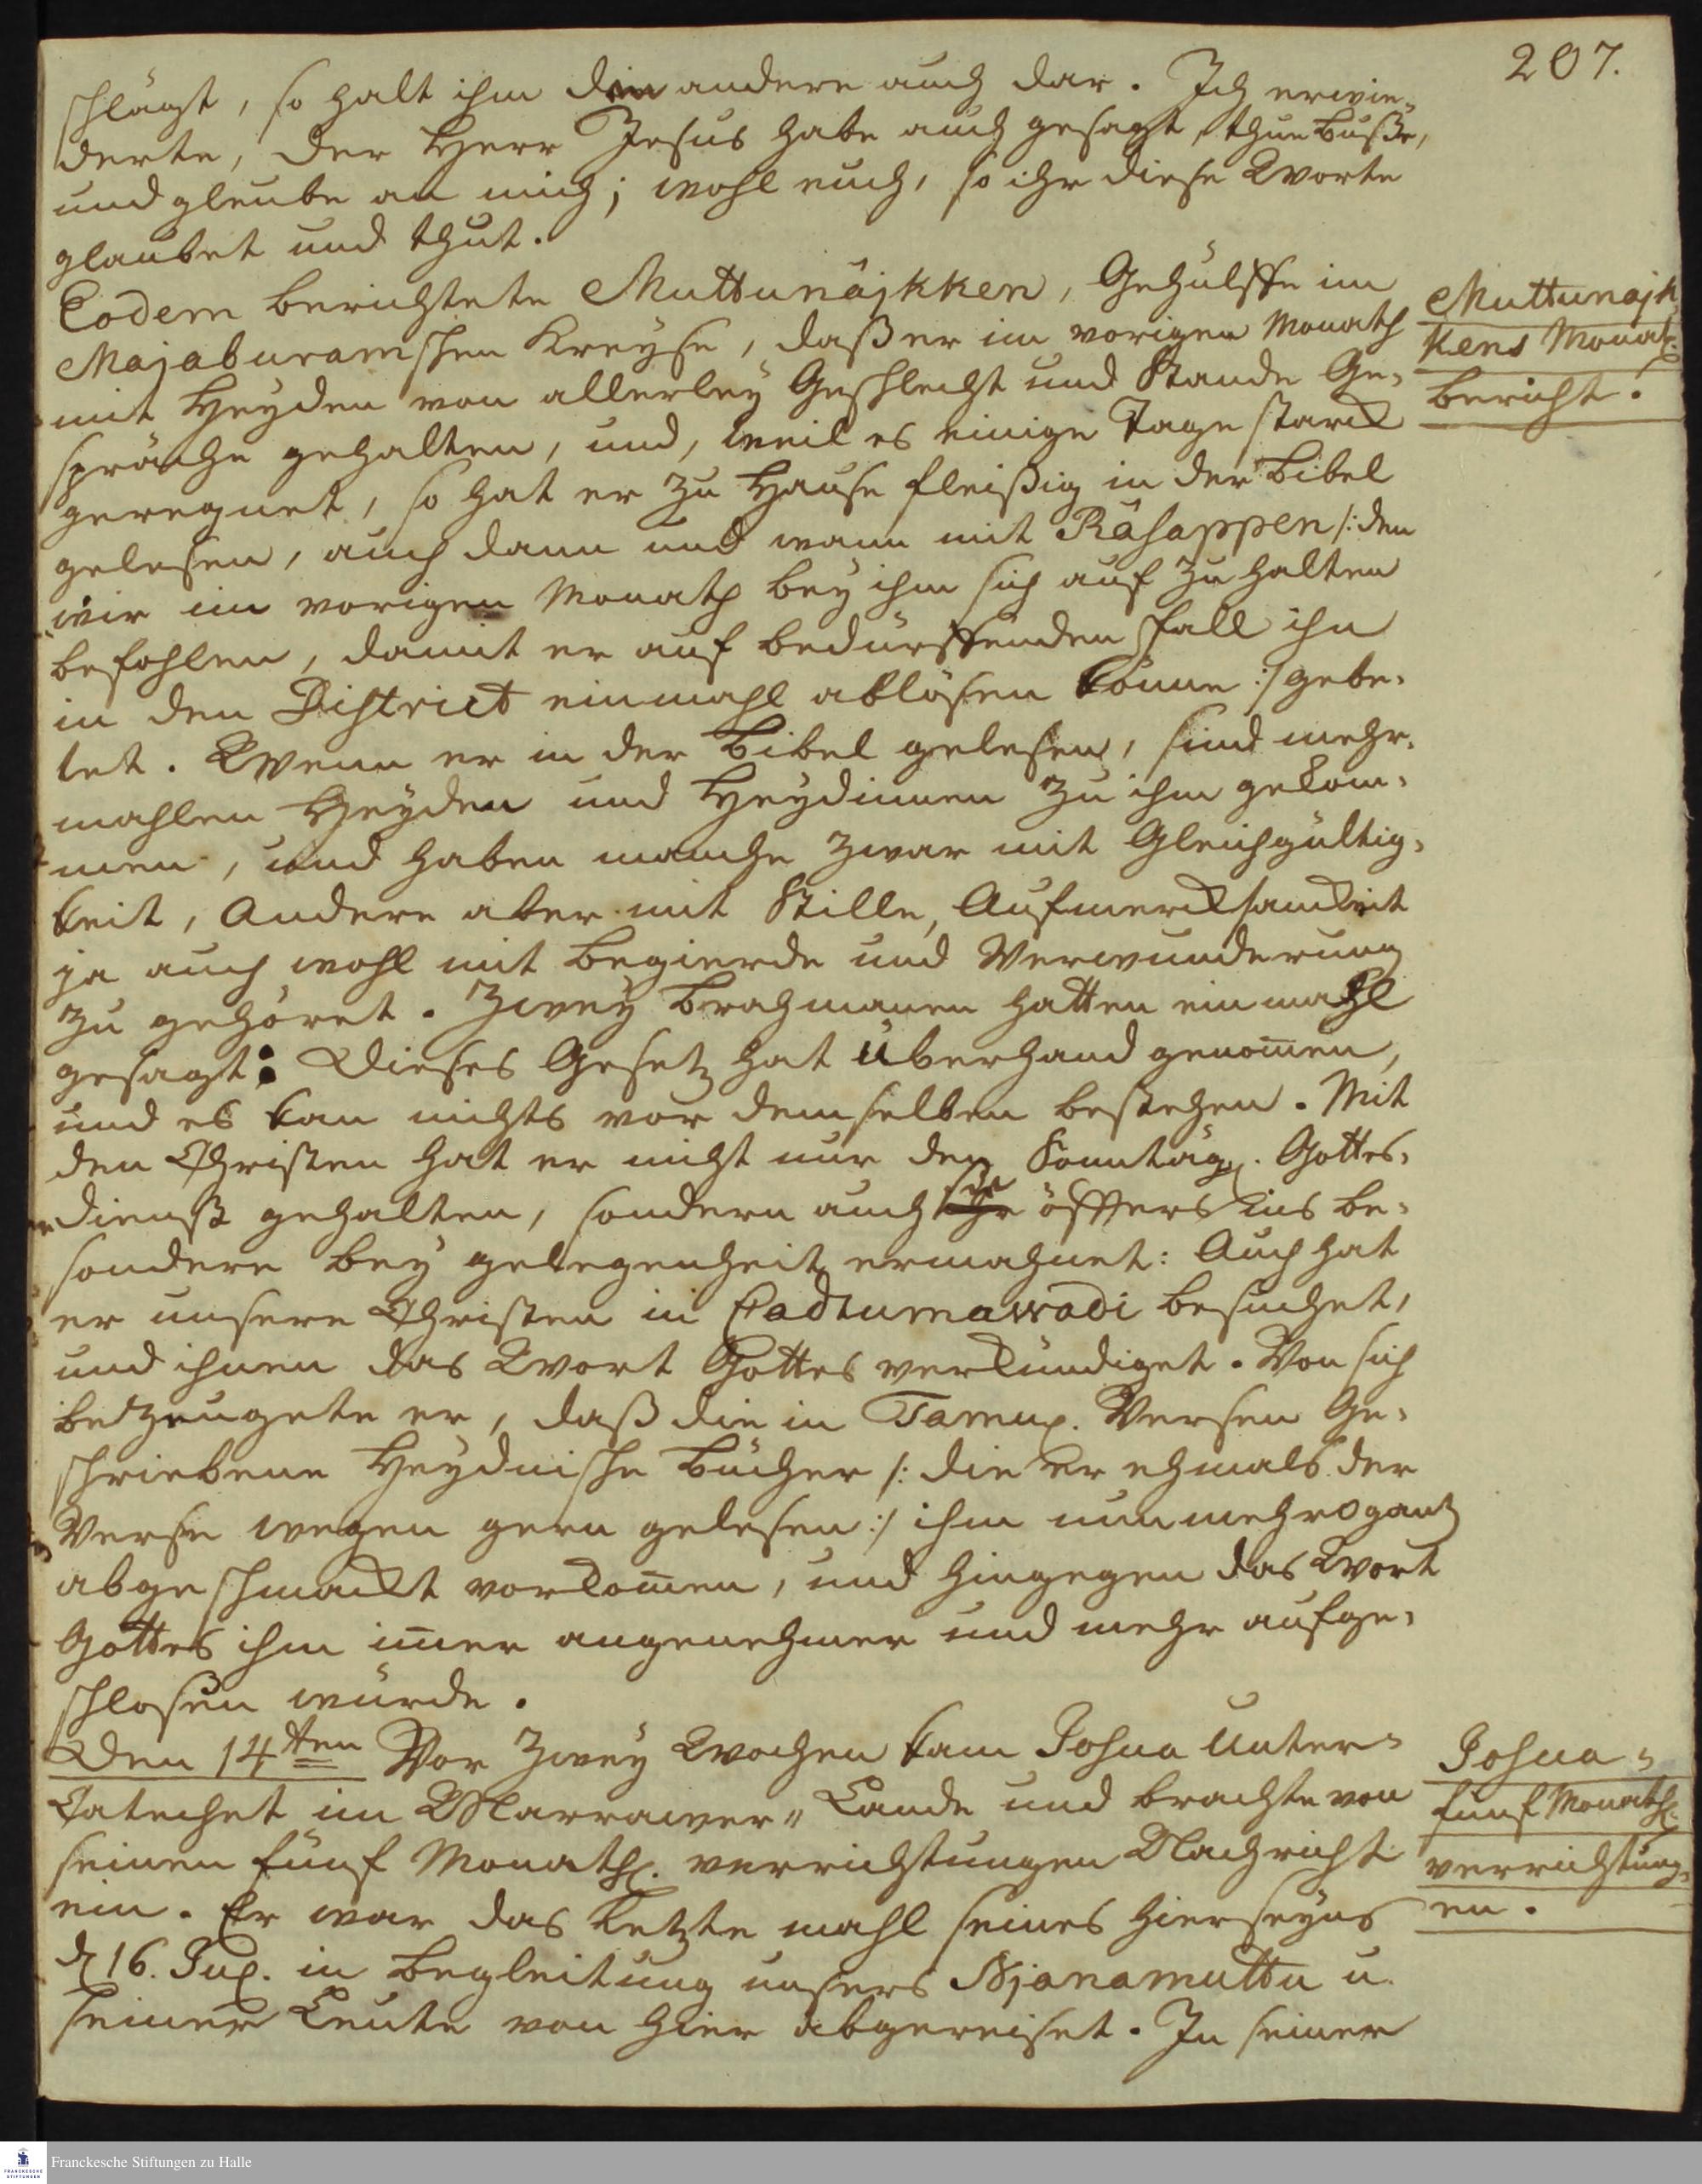 207.
schlägt, so halt ihm den andern auch dar. Ich erwie-
derte, der Herr Jesus habe auch gesagt, thue Buße,
und gleube an mich; wohl euch, so ihr diese Worte
glaubet und thut.
Eodem berichtete Muttunäjkken, Gehülffe im
Majaburamschen Kreyse, daß er im vorigen Monath
mit Heyden von allerley Geschlecht und Stande Ge-
spräche gehalten, und, weil es einige Tage starck
geregnet, so hat er zu Hause fleißig in der Bibel
gelesen, auch dann und wann mit Räsappen /: den
wir im vorigen Monath bey ihm sich auf zu halten
befohlen, damit er auf bedürffenden Fall ihn
in den District einmahl ablösen könne :/ gebe-
tet. Wenn er in der Bibel gelesen, sind mehr-
mahlen Heyden und Heydinnen zu ihm gekom-
men, und haben manche zwar mit Gleichgültig-
keit, Andere aber mit Stille, Aufmercksamkeit
ja auch wohl mit Begierde und Verwunderung
zu gehöret. Zwey Brahmanen hatten einmahl
gesagt: Dieses Gesetz hat überhand genom̄en,
und es kan nichts vor demselben bestehen. Mit
den Christen hat er nicht nur den Sonntägl. Gottes-
dienst gehalten, sondern auch sie öffters ins be-
sondere bey gelegenheit ermahnet: Auch hat
er unsere Christen in Padtumawadi besuchet,
und ihnen das Wort Gottes verkündiget. Von sich
bezeugete er, daß die in Tamul. Versen Ge-
schriebene Heydnische Bücher /: die er ehmals der
Verse wegen gern gelesen :/ ihm nunmehro gantz
abgeschmackt vorkom̄en, und hingegen das Wort
Gottes ihm im̄er angenehmer und mehr aufge-
schlosen würde.
Den 14ten Vor zwey Wochen kam Josua Unter-
Catechet im Marrawer-Lande und brachte von
seinen fünf Monathl. verrichtungen Nachricht
ein. Er war das letzte mahl seines hierseyns
d 16. Jul. in Begleitung unsers Njanamuttu u.
seiner Leute von hier abgereiset. In seiner
Muttunajk
kens Monatl.
bericht.
Josua-
fünf Monathl.
verrichtung-
en.
Franckesche Stiftungen zu Halle